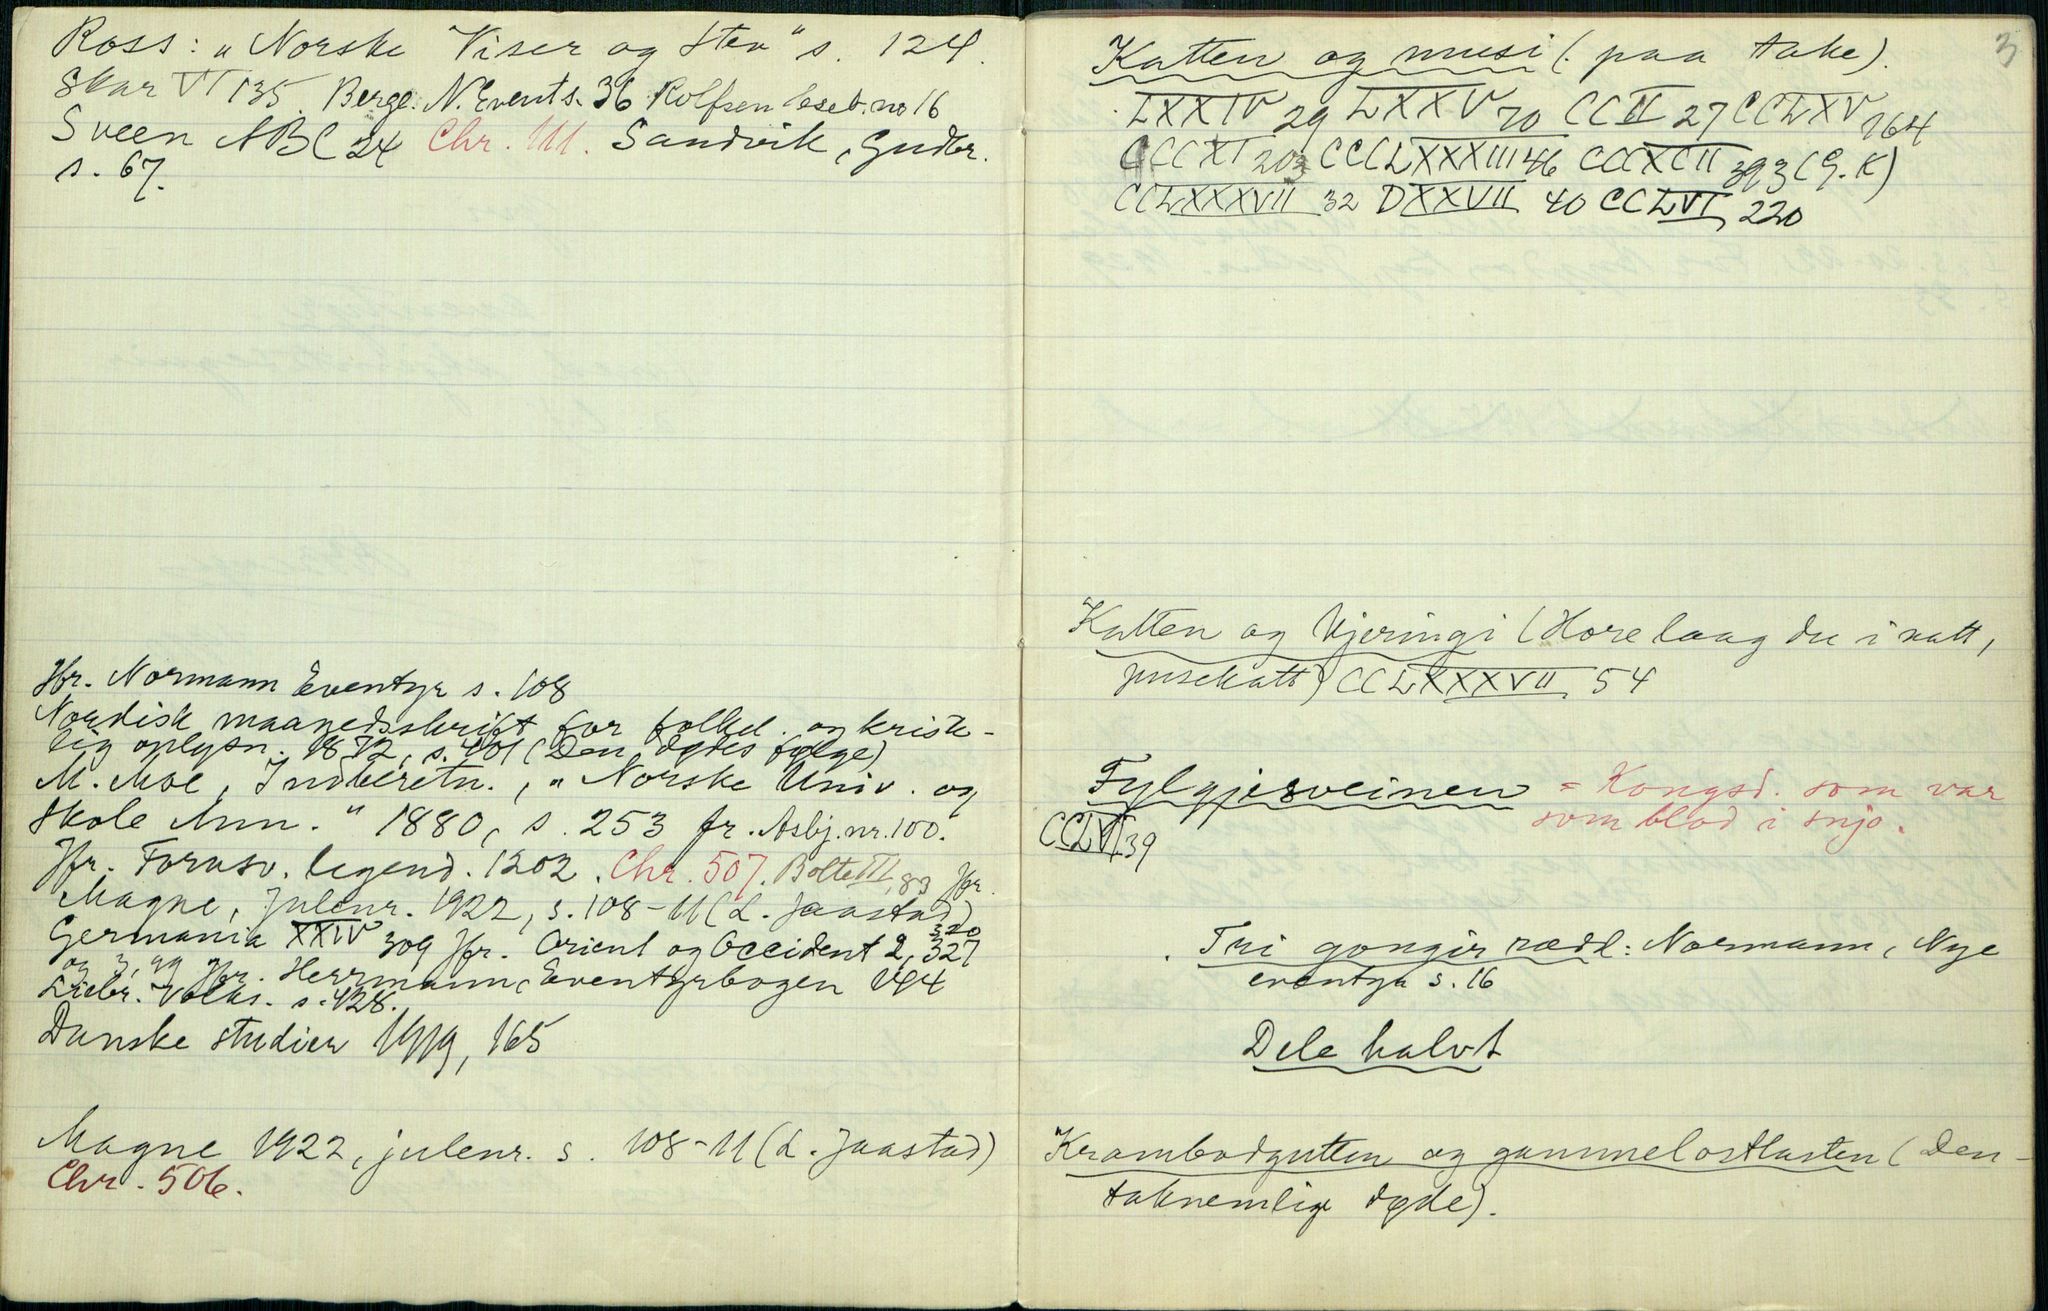 Ross: „Norske Viser og Stev" s. 124.
Skar VI 135. Berge N. Event s. 36 Rolfsen leseb. no 16
Sveen ABC 24 Chr. 111. Sandvik, Gudbr.
s. 67.
Jfr. Normann Eventyr s. 108
Nordisk maanedsskrift for folkel. og kriste-
lig oplysn. 1872, s. 401 (Den dødes følge)
M. Moe, Indberetn., „Norske Univ. og
Skole Ann." 1880, s. 253 fr. Asbj. nr. 100.
Jfr. Fornsv. legend. 1202. Chr. 507. Bolte III, 83 Jfr.
Magne, julenr. 1922, s. 108-11 (L. Jaastad)
Germania XXIV 309 Jfr. Orient og Occident 2, 320 327
og 3, 99 Jfr. Herrmann, Eventyrbogen 144
Liebr. Volks. s. 428.
Danske studier 1919, 165
Magne 1922, julenr. s. 108-11 (L. Jaastad)
Chr. 506.
3
Katten og musi (: paa take).
LXXIV 29 LXXV 70 CCII 27 CCLXV 164
CCCXI 203 CCCLXXXIII 46 CCCXCII 393 (G. K)
CCLXXXVII 32 DXXVII 40 CCLVI 220
Katten og kjeringi (Hore laag du i natt,
pusekatt) CCLXXXVII 54
Fylgjesveinen = Kongsd. som var
som blod i snjo.
CCLVI 39
Tri gongir rædd: Normann, Nye
eventyr s. 16
Dele halvt
Krambodgutten og gammelostlasten (Den
taknemlige døde).